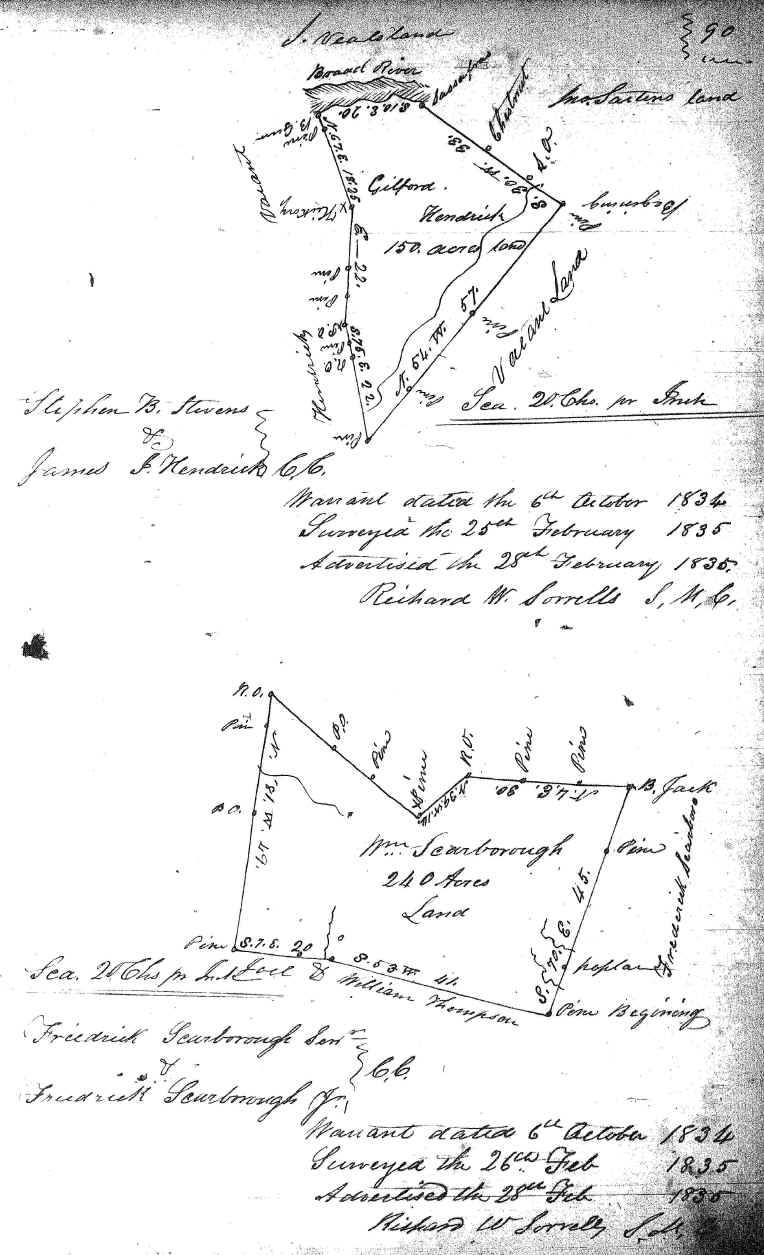 J. Veals land
90
Broad River
Sassafras
S. 10. E. 20.
Chestnut
Jno. Sartens land
B. Gum
Pine
38.
S. O.
Vacant
Gilford
Hendrick
150 acres land
Begining
Pine
Hickory
E — 22.
Pine
Pine
Pine
57.
N. 54. W.
Pine
Pine
Vacant Land
Sea. 20. Chs. pr Inch
Pine
Stephen B. Stevens
&
James F. Hendrick C. C.
Warrant dated the 6th October 1834
Surveyed the 25th February 1835
Advertised the 28th February 1835.
Richard W. Sorrells S, M, C,
R. O.
Pin
P O
Pine
Pine
R. O.
Pine
Pine
B. Jack
N. 4. E. 30.
B O.
N. 81. W. 49.
Wm Scarborough
240 Acres
Land
Pine
45.
S. 70. E.
Frederick Scarboro
poplar
Pine
S. 7. E. 20
S. 53 W 41.
Pine Begining
Sea. 20 Chs pr Inch
Joel &
William Thompson
Friedrick Scarborough Senr
&
Friedrick Scarborough Jr.
C. C.
Warrant dated 6th October 1834
Surveyed the 26th Feb 1835
Advertised the 28th Feb 1835
Richard W Sorrells S. M.